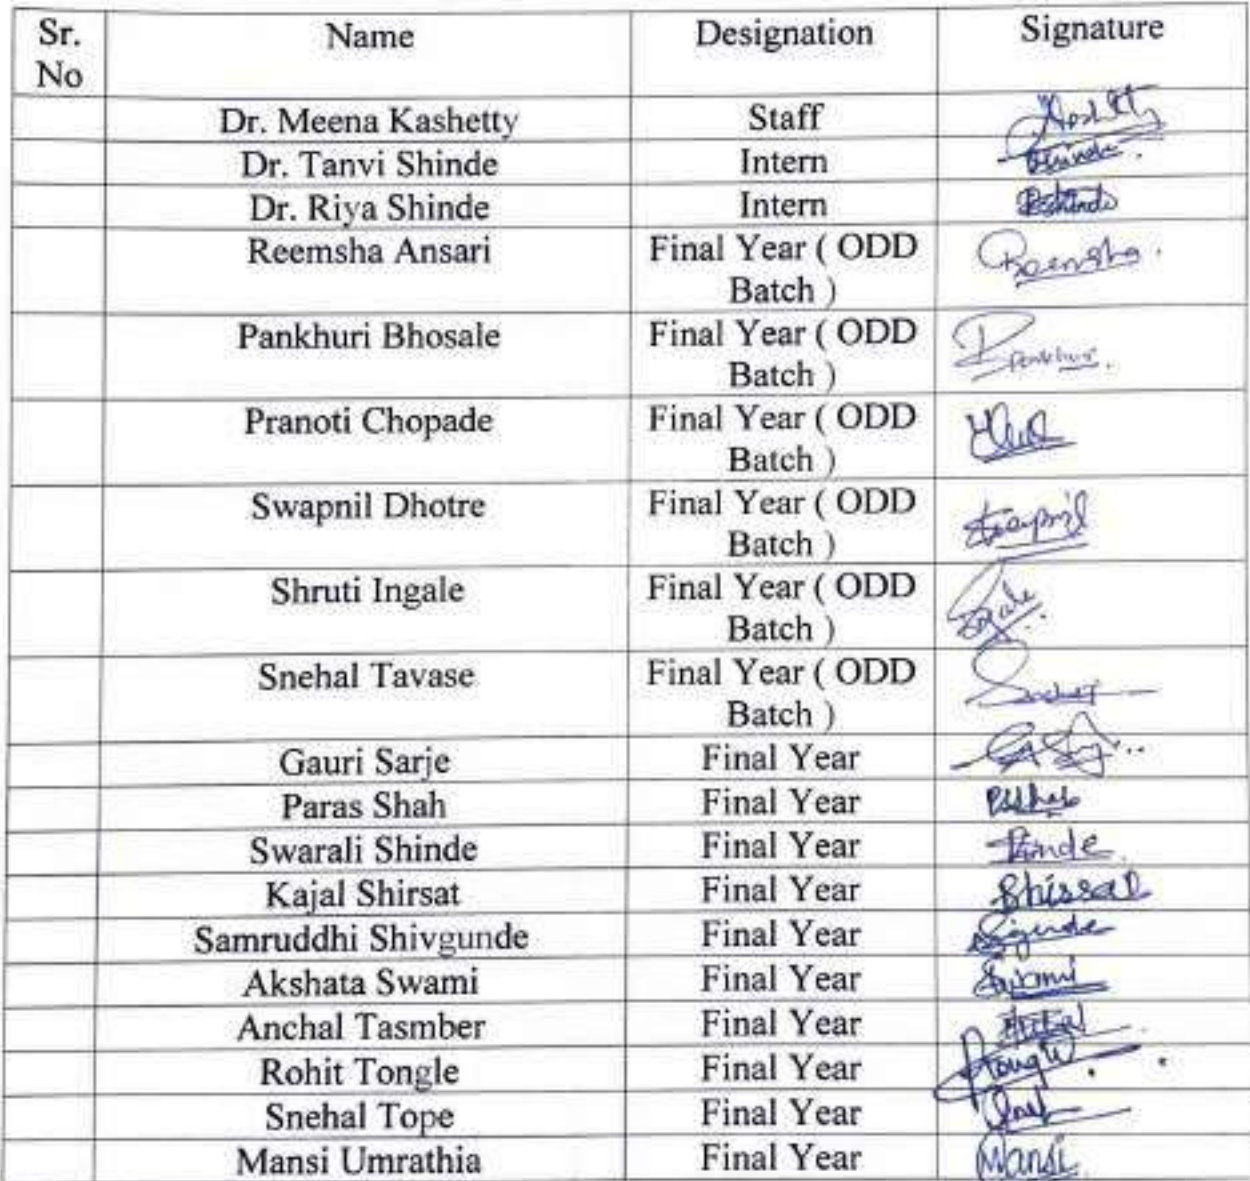 Sr. No Name Designation Signature
Dr. Meena Kashetty Staff
Dr. Tanvi Shinde Intern Shinde.
Dr. Riya Shinde Intern RShinde
Reemsha Ansari Final Year ( ODD Batch ) Reemsha.
Pankhuri Bhosale Final Year ( ODD Batch ) Pankhuri.
Pranoti Chopade Final Year ( ODD Batch )
Swapnil Dhotre Final Year ( ODD Batch ) Swapnil
Shruti Ingale Final Year ( ODD Batch )
Snehal Tavase Final Year ( ODD Batch )
Gauri Sarje Final Year
Paras Shah Final Year
Swarali Shinde Final Year
Kajal Shirsat Final Year
Samruddhi Shivgunde Final Year
Akshata Swami Final Year Swami
Anchal Tasmber Final Year
Rohit Tongle Final Year
Snehal Tope Final Year
Mansi Umrathia Final Year Mansi